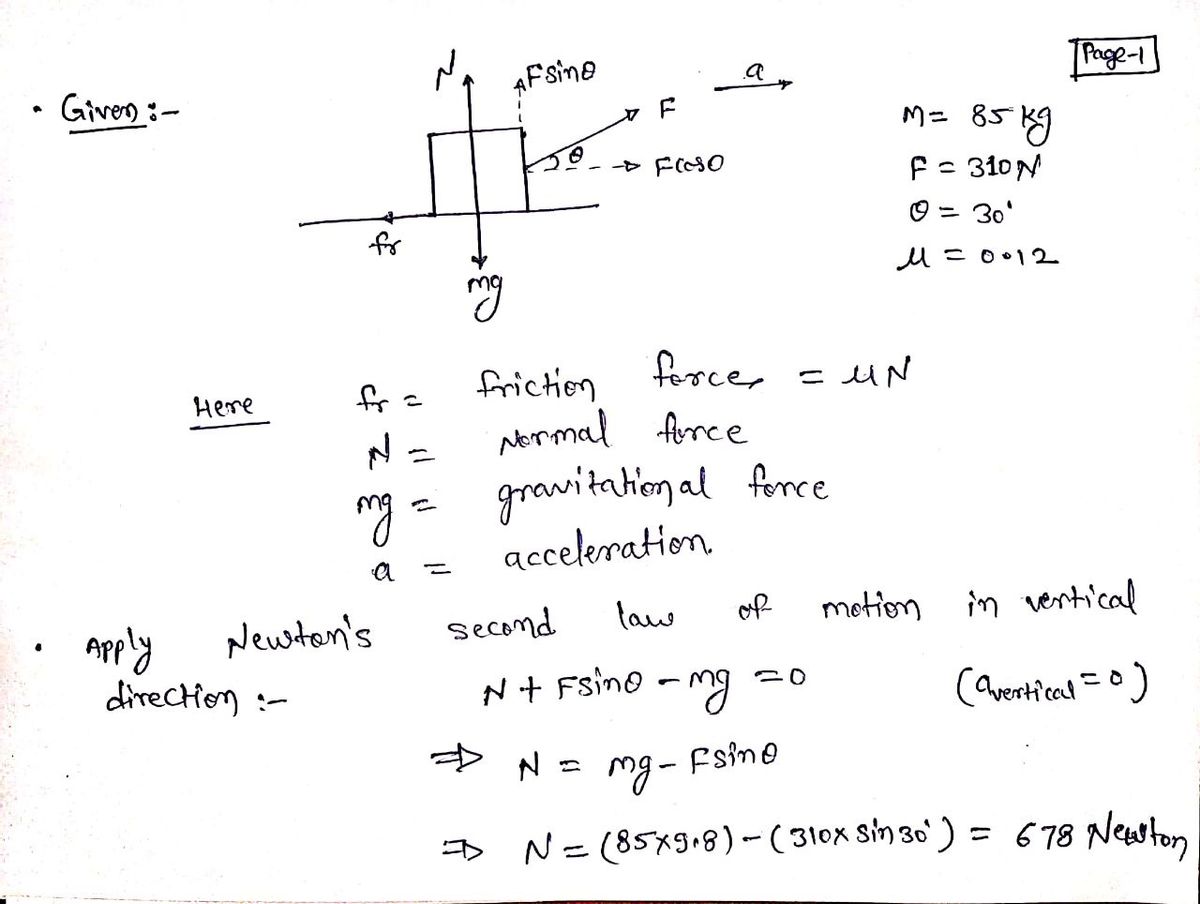 Page-1
• Given :-
N
Fsinθ
a
F
θ
Fcosθ
fr
mg
M = 85 kg
F = 310 N
θ = 30°
μ = 0.12
Here fr = friction force = μN
N = Normal force
mg = gravitational force
a = acceleration.
• Apply Newton's second law of motion in vertical
direction :-
N + Fsinθ - mg = 0 (avertical = 0)
⇒ N = mg - Fsinθ
⇒ N = (85×9.8) - (310× sin30°) = 678 Newton